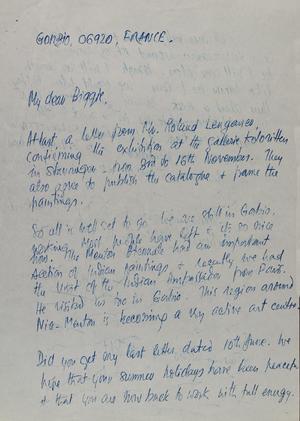 GORBIO, 06920, FRANCE.
My dear Biggi,
At last, a letter from Mr. Roland
confirming the exhibition at the Gallerie Koloritten
in Stavanger - from 3rd to 18th November. They
also agree to publish the catalogue & frame the
paintings.
So all is well set to go. We are still in Gorbio,
working. Most people have left & it's so nice
now. The Menton Biennale had an important
section of Indian paintings & recently we had
the visit of the Indian Ambassador from Paris.
He visited us too in Gorbio. This region around
Nice-Menton is becoming a very active art centre.
Did you get my last letter dated 10th June. We
hope that your summer holidays have been peaceful
& that you are now back to work with full energy.